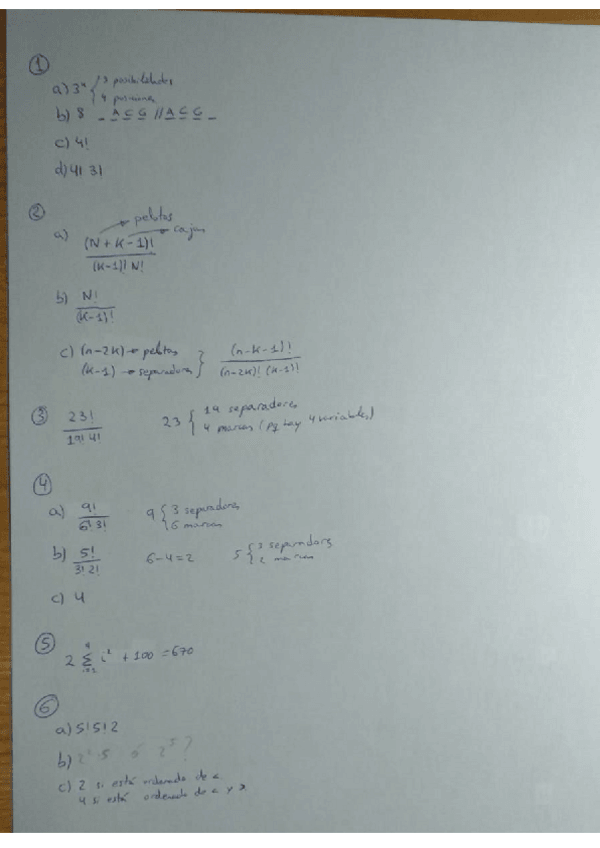 ①
a) 3⁴ { 3 posibilidades
4 posiciones
b) 8 _ A C G // A C G _
c) 4!
d) 4! 3!
②
a) (N + K - 1)! / (K-1)! N! → pelotas → cajas
b) N! / (K-1)!
c) (n-2K) → pelotas
(K-1) → separadores } (n-K-1)! / (n-2K)! (K-1)!
③ 23! / 19! 4! 23 { 19 separadores
4 marcas (pq hay 4 variables)
④
a) 9! / 6! 3! 9 { 3 separadores
6 marcas
b) 5! / 3! 2! 6-4=2 5 { 3 separadores
2 marcas
c) 4
⑤ 2 Σ i² + 100 = 670
⑥
a) 5! 5! 2
b) 2⁵ ?
c) 2 si está ordenado de <
4 si está ordenado de < y >